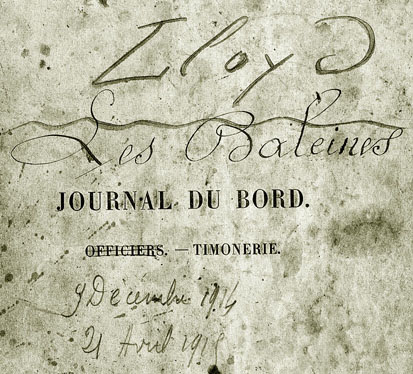 Lloyd
Les Baleines
JOURNAL DU BORD.
OFFICIERS. — TIMONERIE.
9 Décembre 1914
21 Avril 1915